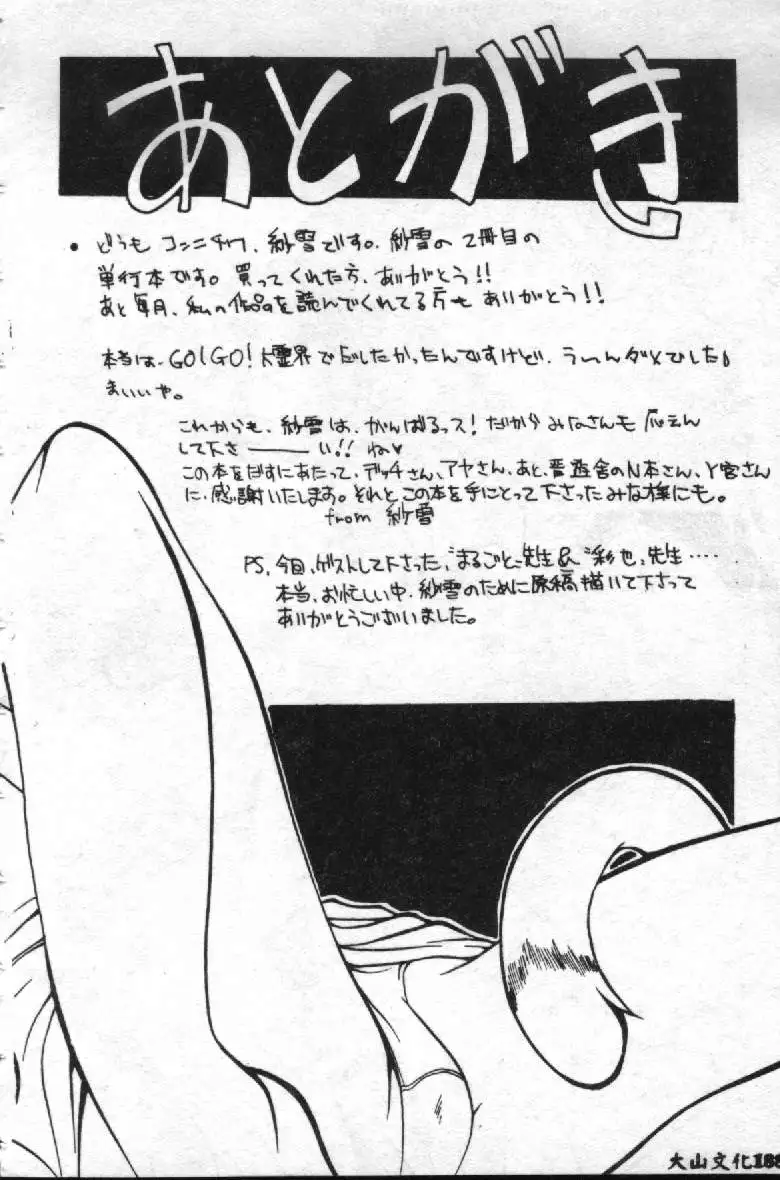 あとがき
• どうも コンニチワ、紗雪です。紗雪の 2冊目の
単行本です。買ってくれた方、ありがとう!!
あと毎月、私の作品を読んでくれてる方も ありがとう!!
本当は、GO!GO!大霊界でだしたかったんですけど、う〜んダメでした
まいいや。
これからも、紗雪は、がんばるっス! だから みなさんも 応えん
して下さ———い!! ね♥
この本をだすにあたって、デッチさん、アヤさん、あと、晋遊舎のN本さん、Y宮さん
に、感謝いたします。それと この本を手にとって下さったみな様にも。
from 紗雪
PS、今回、ゲストして下さった、"まるごと、先生& "彩也、先生‥‥
本当、お忙しい中、紗雪のために原稿描いて下さって
ありがとうございました。
大山文化